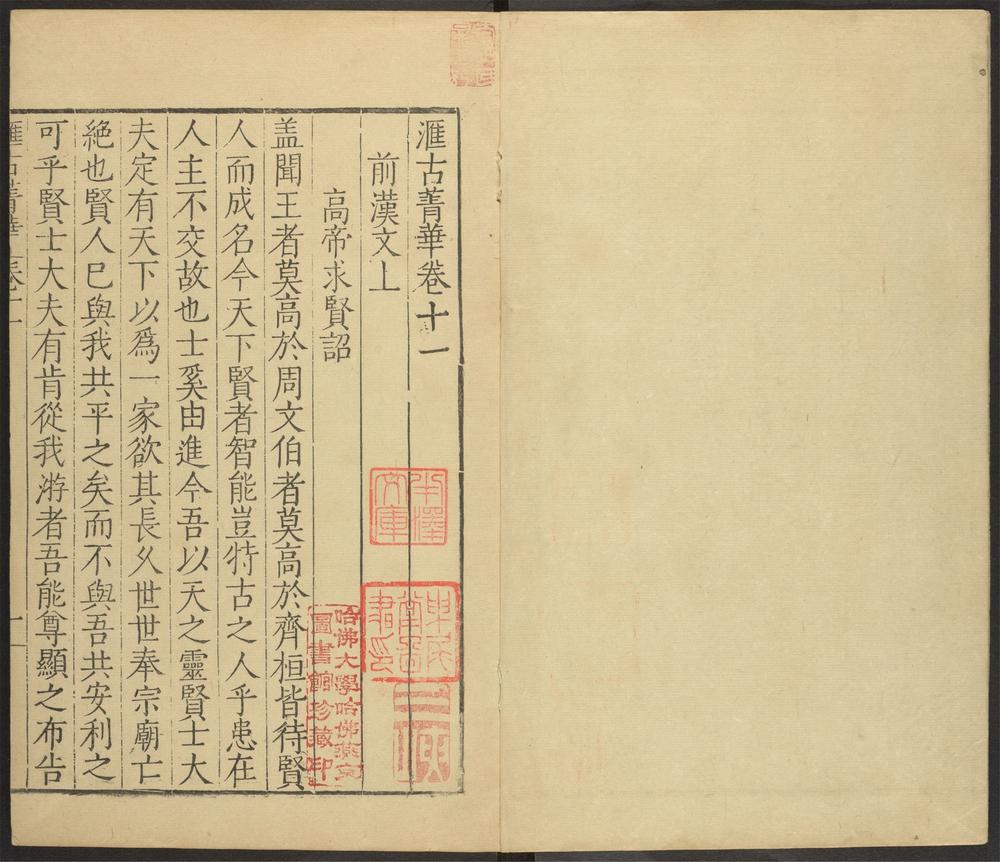 滙古菁華卷十一
前漢文上
高帝求賢詔
盖聞王者莫高於周文伯者莫高於齊桓皆待賢
人而成名今天下賢者智能豈特古之人乎患在
人主不交故也士奚由進今吾以天之靈賢士大
夫定有天下以爲一家欲其長久世世奉宗廟亡
絶也賢人已與我共平之矣而不與吾共安利之
可乎賢士大夫有肯從我游者吾能尊顯之布告
滙古菁華卷十一
一
半澤文庫
哈佛大學哈佛燕京圖書館珍藏印